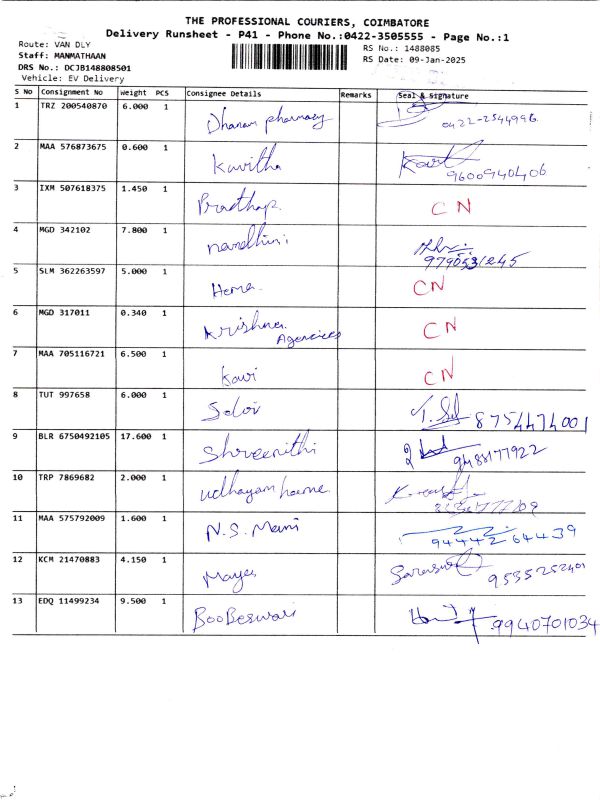 THE PROFESSIONAL COURIERS, COIMBATORE
Delivery Runsheet - P41 - Phone No.:0422-3505555 - Page No.:1
Route: VAN DLY
RS No.: 1488085
Staff: MANMATHAAN
RS Date: 09-Jan-2025
DRS No.: DCJB148808501
Vehicle: EV Delivery
S No Consignment No Weight PCS Consignee Details Remarks Seal & Signature
1 TRZ 200540870 6.000 1 Dhanam pharmacy 0422-2544996
2 MAA 576873675 0.600 1 Kavitha 9600940406
3 IXM 507618375 1.450 1 Pradhap. CN
4 MGD 342102 7.800 1 nandhini 9790531245
5 SLM 362263597 5.000 1 Hema. CN
6 MGD 317011 0.340 1 Krishna Agencies CN
7 MAA 705116721 6.500 1 Kavi CN
8 TUT 997658 6.000 1 8754474001
9 BLR 6750492105 17.600 1 Shreenithi 9488177922
10 TRP 7869682 2.000 1 udhayam home
11 MAA 575792009 1.600 1 N.S. Mani 94442 64439
12 KCM 21470883 4.150 1 9535252401
13 EDQ 11499234 9.500 1 BooBeswari 9940701034